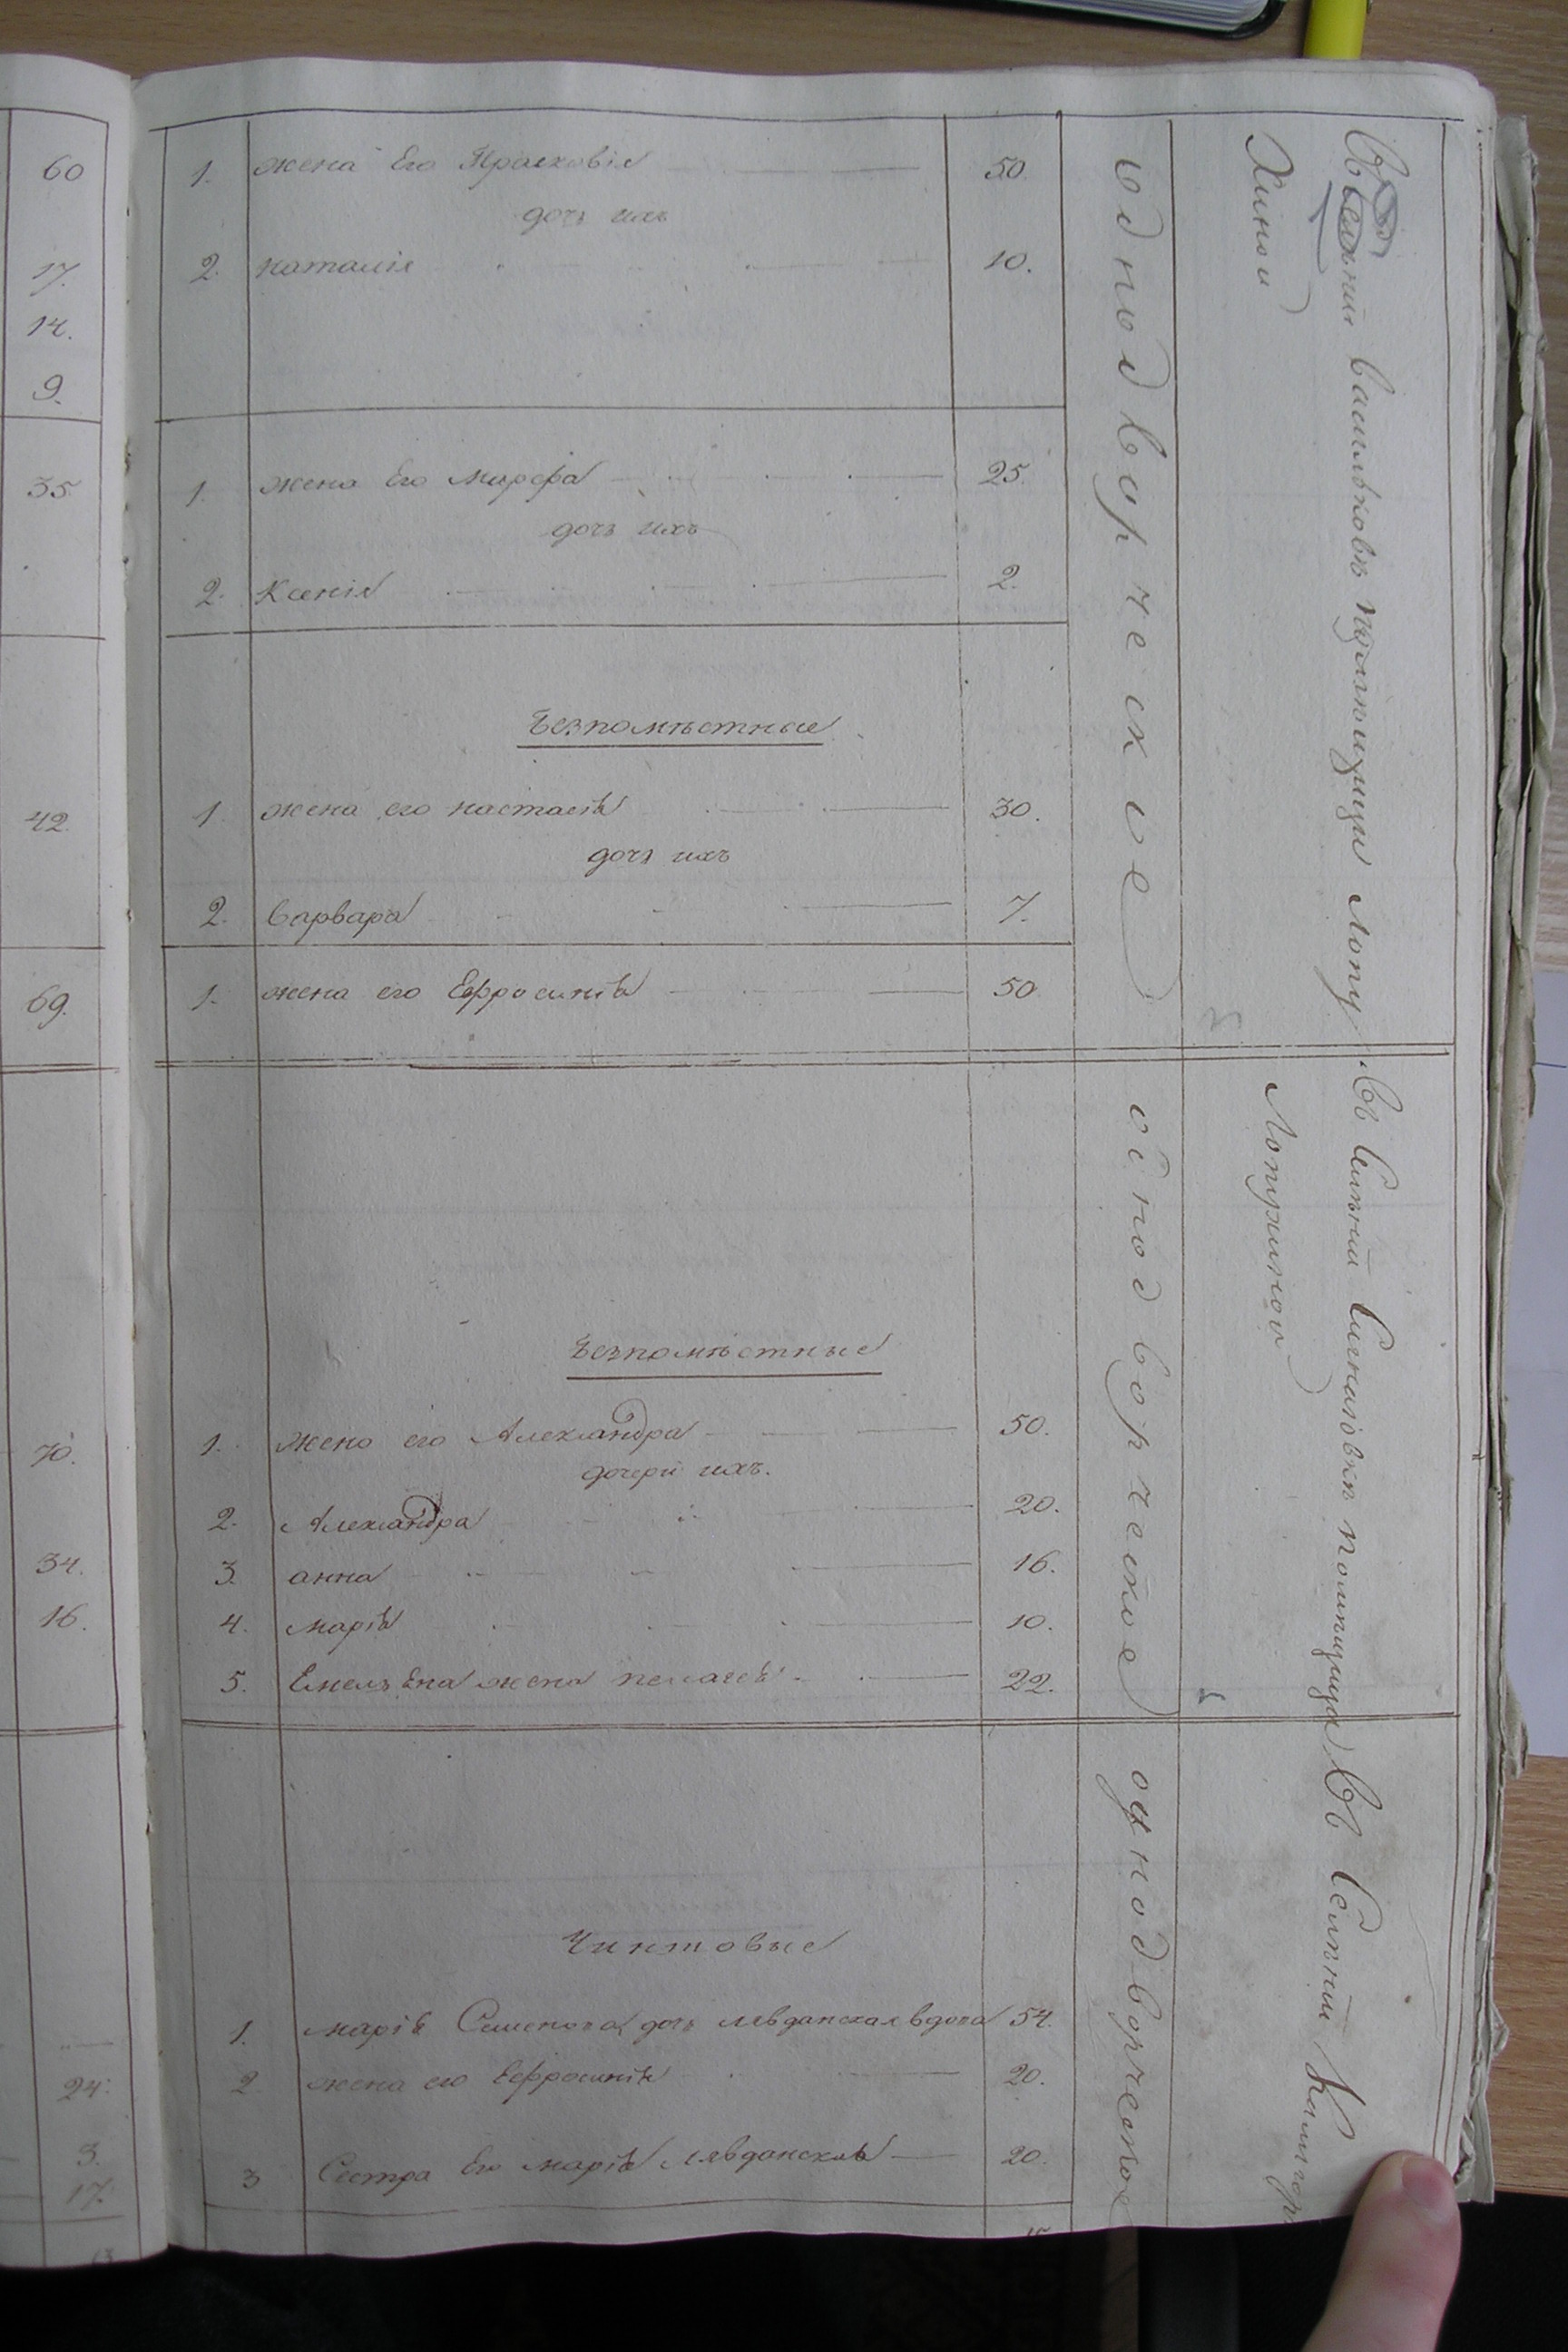 60
17.
14.
9.
35
42
69.
70.
34.
16.
24.
3.
17.
1. жена Его Прасковія 50
дочь ихъ
2. наталія 10.
1. жена Его марфа 25.
дочь ихъ
2. Ксенія 2.
Безпомѣстные
1. жена его настасія 30.
дочь ихъ
2. варвара 7.
1. жена его Ефросинія 50
Безпомѣстные
1. жена его Александра 50.
дочери ихъ.
2. Александра 20.
3. анна 16.
4. марія 10.
5. Емельяна жена пелагея 22.
Чиншовые
1. марія Семенова дочь лявданская вдова 54.
2. жена его Ефросинія 20.
3 Сестра Его марія Лявданская 20.
однодворческое
однодворческое
однодворческое
Васильковѣ Лопу
Хиной
Въ Селѣніи помѣщица
Лопухиной
Въ Селѣніи